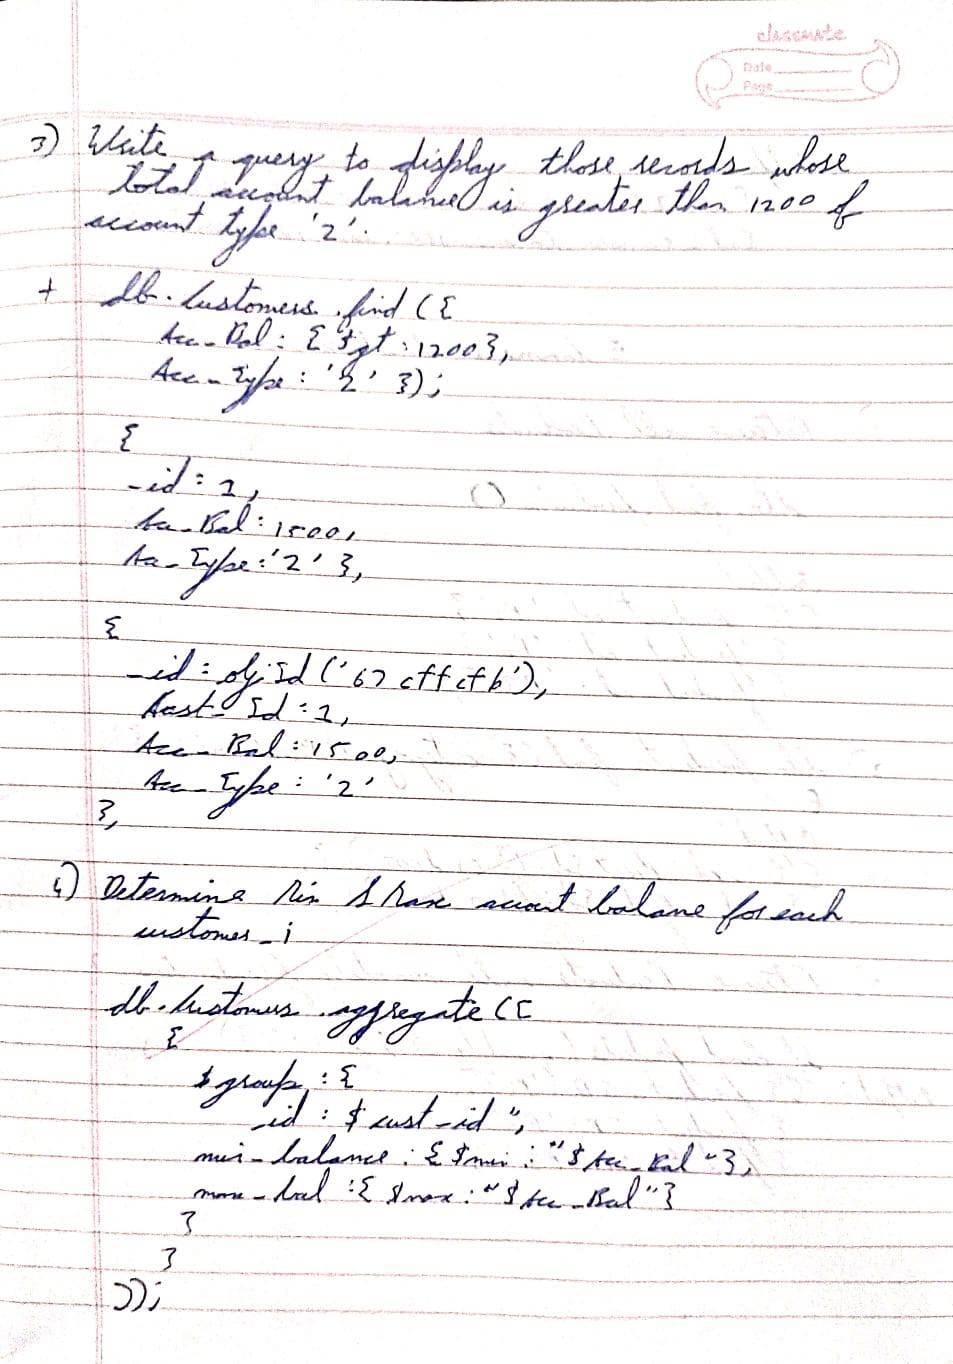 classmate
Date
Page
3) Write a query to display those records whose
total account balance is greater than 1200 of
account type '2'.
+ db.Customers.find ({
Acc_Bal : { $gt : 1200},
Acc_Type : '2' });
{
_id : 1,
Acc_Bal : 1500,
Acc_Type : '2' },
{
_id : objId ('67cffcfb'),
Cust_Id : 1,
Acc_Bal : 1500,
Acc_Type : '2'
},
4) Determine Min & Max account balance for each
customer_i
db.Customers.aggregate ([
{
$group : {
_id : $cust_id",
min_balance : { $min : "$Acc_Bal"},
max_bal : { $max : "$Acc_Bal"}
}
}
]);